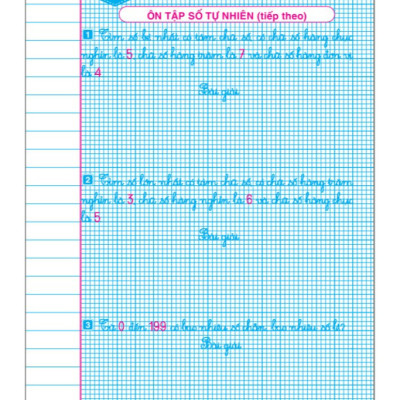 ÔN TẬP SỐ TỰ NHIÊN (tiếp theo)
1 Tìm số bé nhất có tám chữ số, có chữ số hàng chục
nghìn là 5, chữ số hàng trăm là 7 và chữ số hàng đơn vị
là 4.
Bài giải
2 Tìm số lớn nhất có tám chữ số, có chữ số hàng trăm
nghìn là 3, chữ số hàng nghìn là 6 và chữ số hàng chục
là 5.
Bài giải
3 Từ 0 đến 199 có bao nhiêu số chẵn, bao nhiêu số lẻ?
Bài giải